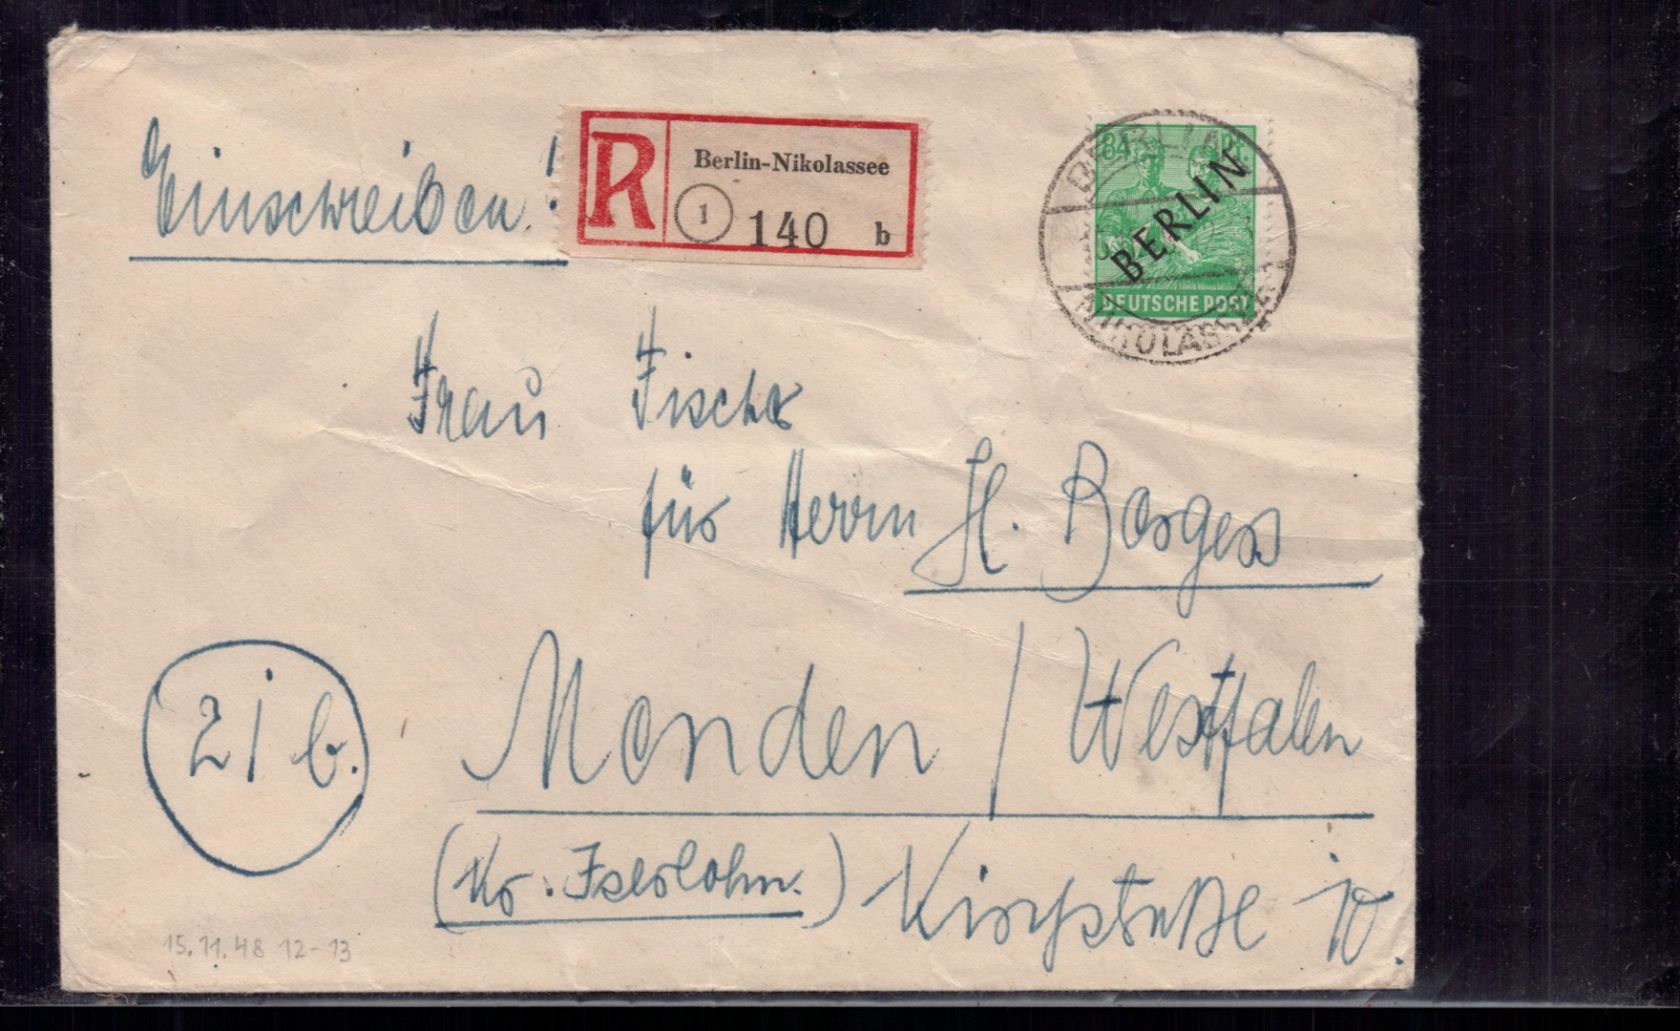 Einschreiben!
R
Berlin-Nikolassee
1 140 b
84 Pf
BERLIN
DEUTSCHE POST
BERLIN
NIKOLASSEE
Frau Fischer
für Herrn H. Borgers
21 b.
Menden / Westfalen
(Kr. Iserlohn.) Kirchstraße 10.
15.11.48 12-13